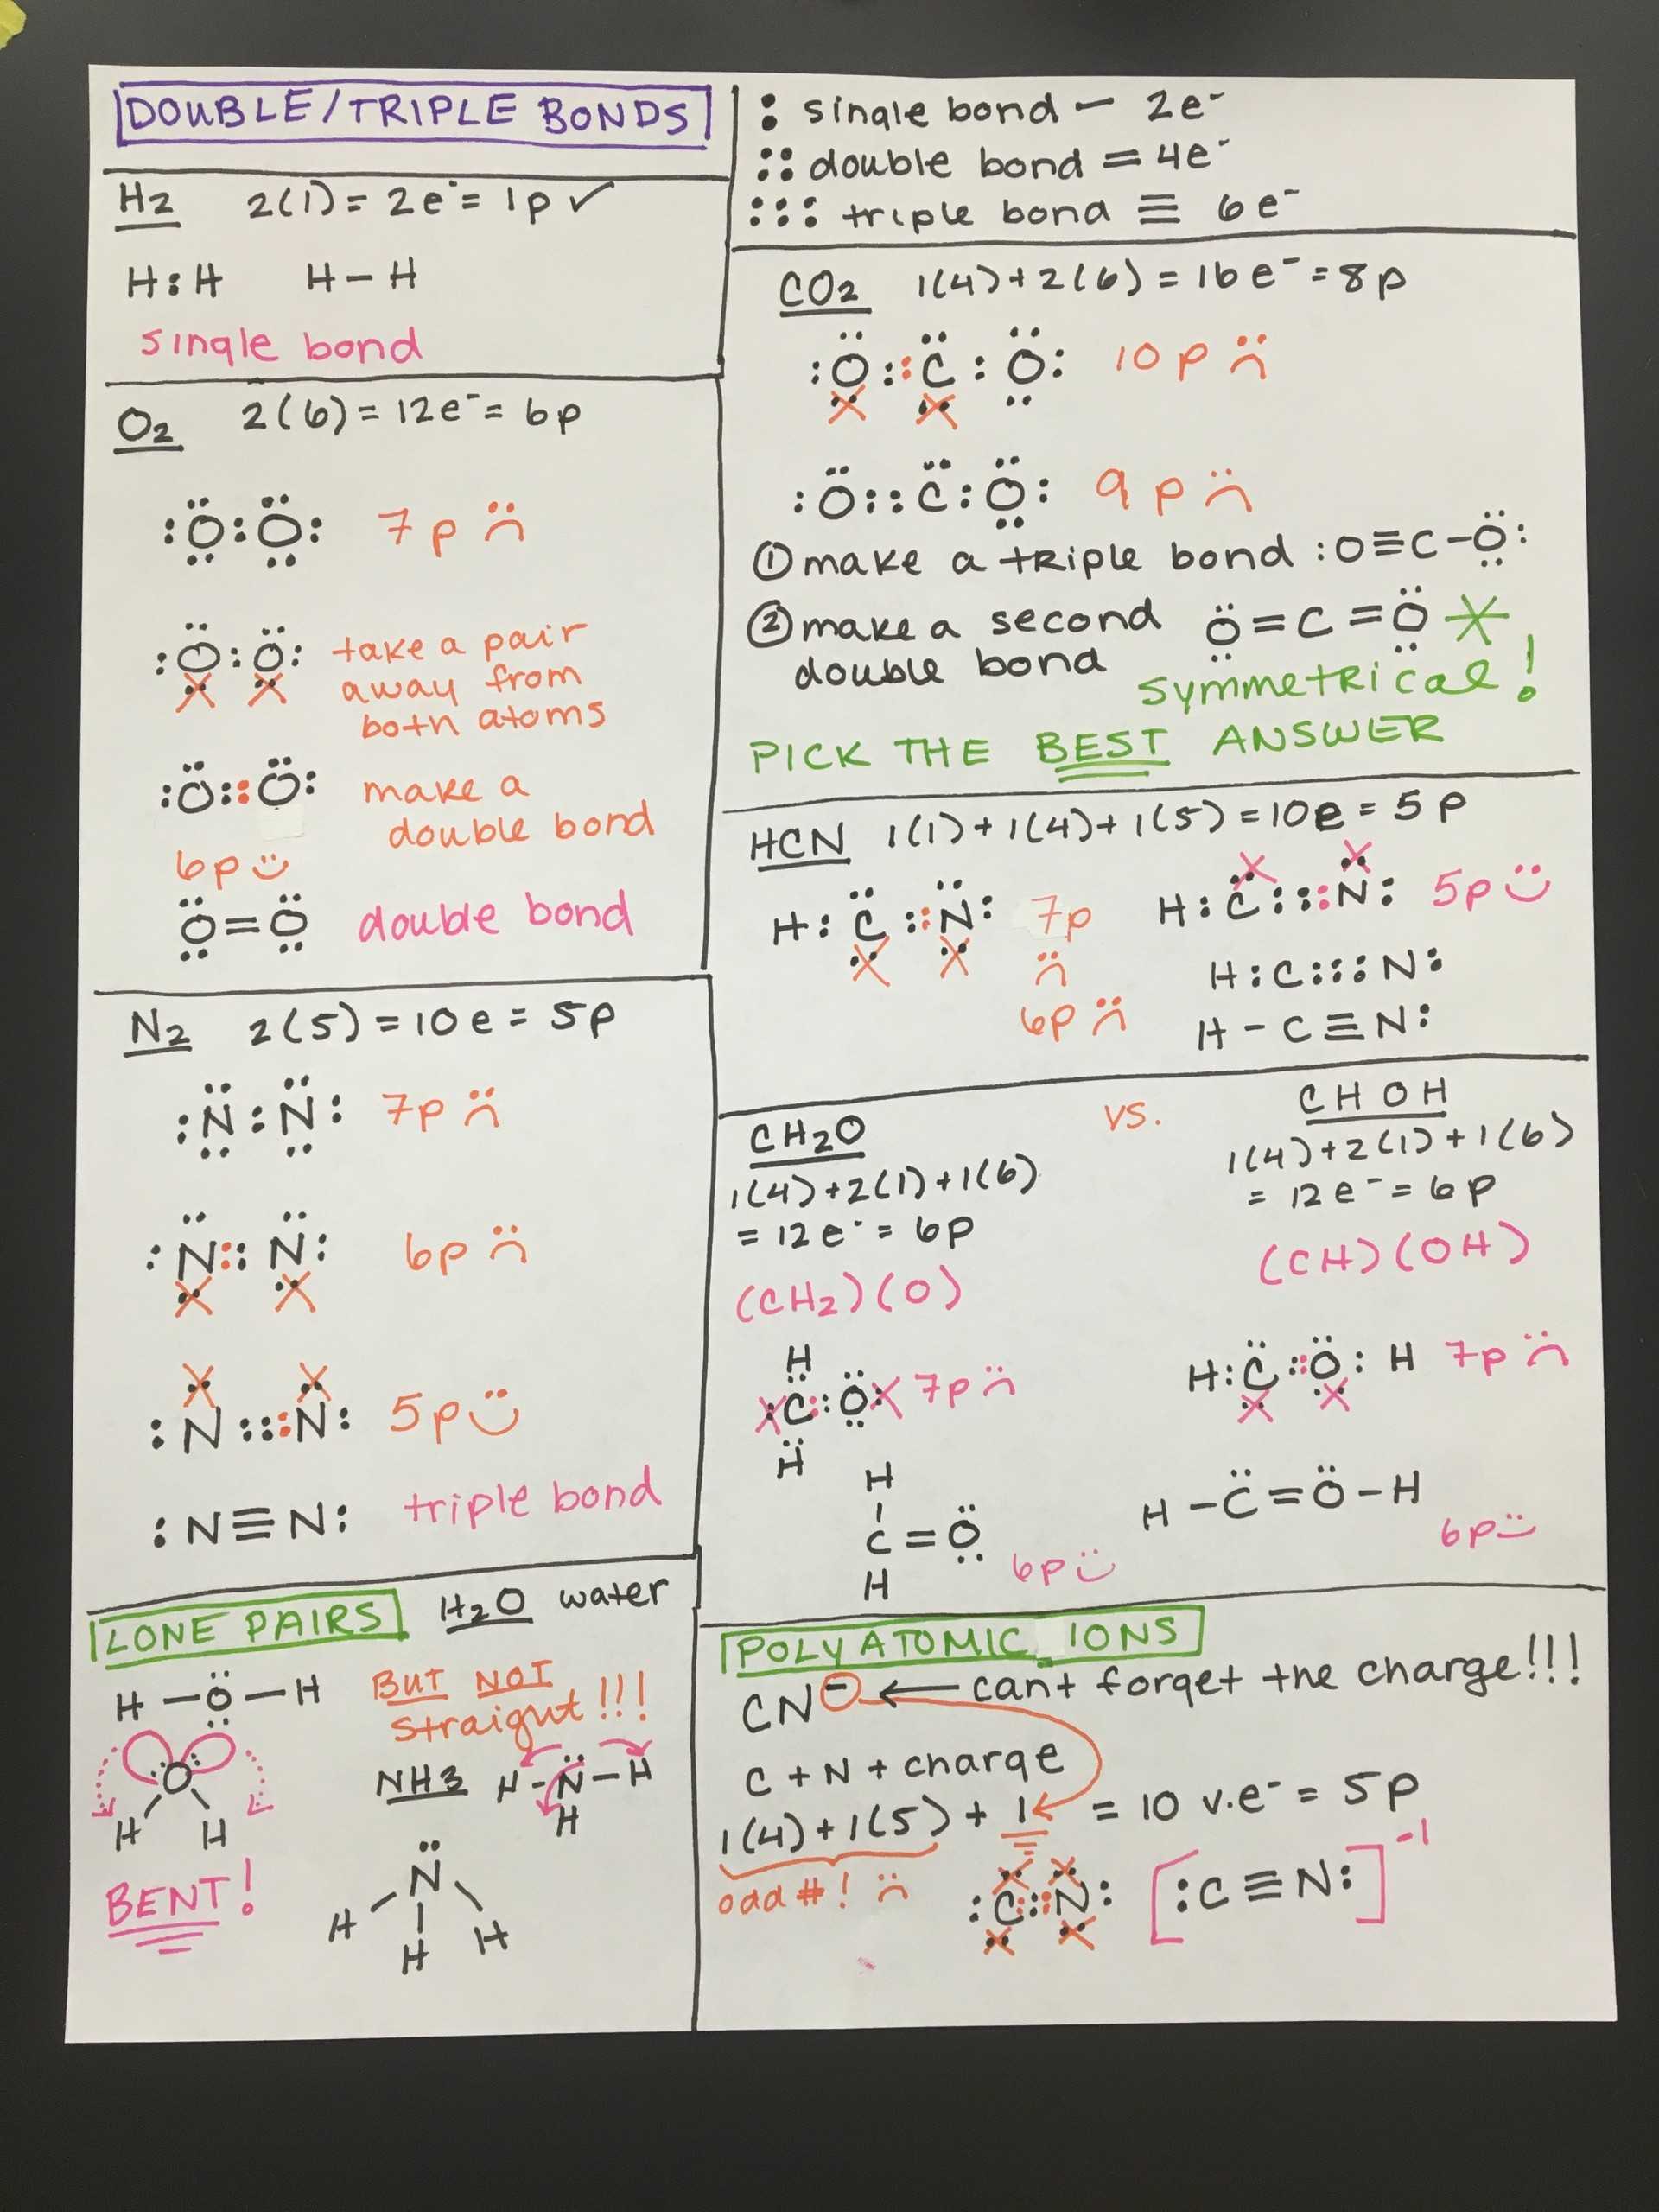 DOUBLE/TRIPLE BONDS
: single bond — 2e⁻
:: double bond = 4e⁻
::: triple bond ≡ 6e⁻
H₂ 2(1) = 2e⁻ = 1p ✓
H:H H-H
single bond
O₂ 2(6) = 12e⁻ = 6p
:Ö:Ö: 7p ☹
:Ö:Ö: take a pair
away from
both atoms
:Ö::Ö: make a
double bond
6p ☺
Ö=Ö double bond
N₂ 2(5) = 10e = 5p
:N:N: 7p ☹
:N::N: 6p ☹
:N:::N: 5p ☺
:N≡N: triple bond
LONE PAIRS H₂O water
H—Ö—H BUT NOT
straight!!!
O
H H
BENT!
NH3 H-N̈-H
H
N̈
H H H
CO₂ 1(4)+2(6) = 16e⁻ = 8p
:Ö::C̈:Ö: 10p ☹
:Ö::C̈:Ö: 9p ☹
① make a triple bond :O≡C-Ö:
② make a second Ö=C=Ö *
double bond
symmetrical!
PICK THE BEST ANSWER
HCN 1(1)+1(4)+1(5) = 10e = 5p
H:C̈::N̈: 7p ☹
6p ☹
H:C:::N: 5p ☺
H:C:::N:
H-C≡N:
CH₂O
1(4)+2(1)+1(6)
= 12e⁻ = 6p
(CH₂)(O)
H
:C::Ö: 7p ☹
H
H
C=Ö
H
6p ☺
vs.
CHOH
1(4)+2(1)+1(6)
= 12e⁻ = 6p
(CH)(OH)
H:C̈::Ö:H 7p ☹
H-C̈=Ö-H
6p ☺
POLYATOMIC IONS
CN⁻ ← can't forget the charge!!!
C + N + charge
1(4)+1(5) + 1 = 10 v.e⁻ = 5p
odd #! ☹
:C:::N: [:C≡N:]⁻¹